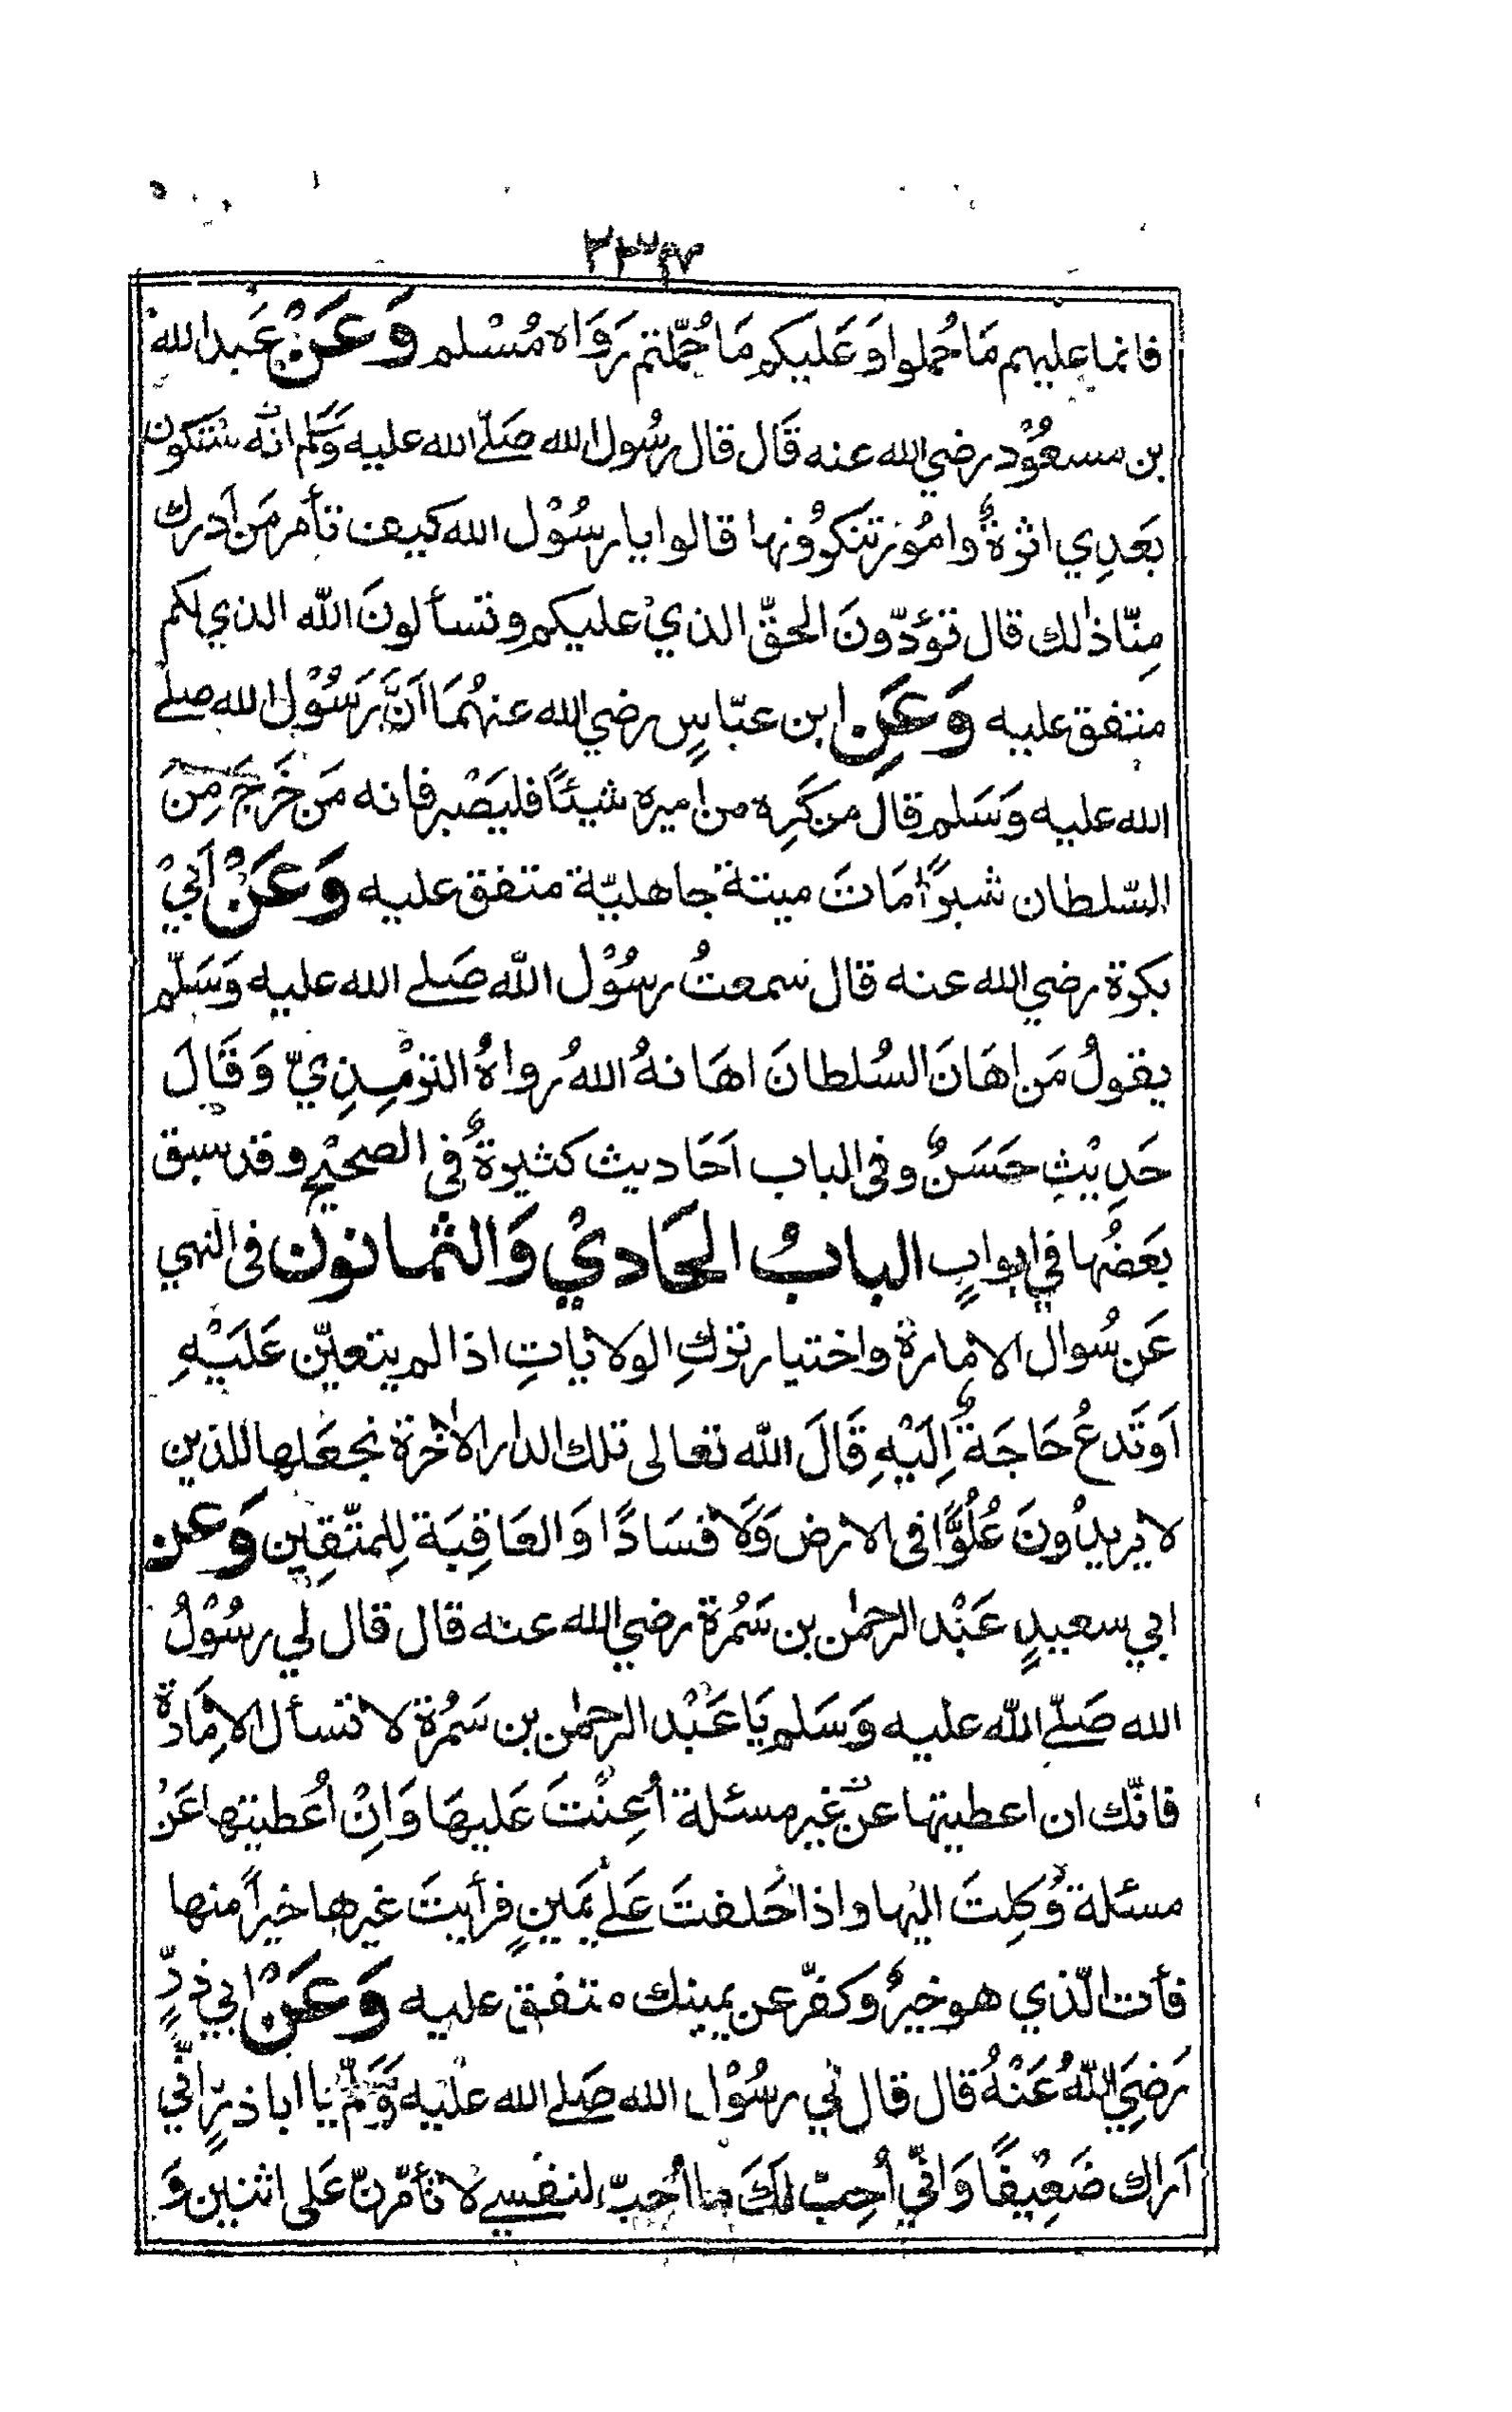 فانما عليهم مَا حُملوا وَعَليكم مَا حُمّلتم رَوَاه مُسْلم وَعَنْ عَبد الله
بن مسعُوْد رضي الله عنه قَال قال رسُول الله صَلّے الله عليه وَسَلم انّه ستكون
بَعدِي اثرةٌ وامُوْر تنكرُوْنها قالوا يا رسُوْل الله كيف تأمر مَن اَدرك
مِنّا ذٰلك قال تؤدّونَ الحقّ الذيْ عليكم وتسألونَ الله الذي لكم
متفق عليه وَعَنِ ابن عبّاسٍ رضي الله عنهُمَا اَنَّ رَسُوْل الله صلے
الله عليه وَسَلم قالَ من كَرِه من اميره شيئًا فليَصْبر فانه مَن خَرجَ مِنَ
السّلطان شبرًا مَاتَ ميتة جاهليّة متفق عليه وَعَنْ اَبيْ
بكرة رضي الله عنه قال سمعتُ رسُوْل الله صَلے الله عليه وَسَلّم
يقولُ مَن اهَانَ السُلطانَ اهَانهُ اللهُ رواهُ الترْمِذِيّ وَقَالَ
حَدِيْثٌ حَسَنٌ وفى الباب اَحَاديث كثيرةٌ فى الصحيْح وقد سبق
بَعضُها في ابوابٍ البابُ الحَاديْ وَالثمانون فى النهي
عَن سُوال الامارة واختيار تركِ الولاياتِ اذا لم يتعيّن عَلَيْهِ
اَو تَدعُ حَاجَةٌ اِلَيْهِ قَالَ الله تعالى تلك الدار الاٰخرة نجعَلها للذين
لا يُريدُونَ عُلُوًّا فى الارض وَلَا فسَادًا وَالعَاقِبَة لِلمتّقِين وَعن
ابي سعيدٍ عَبْد الرحمٰن بن سَمُرة رضي الله عنه قال قال لي رسُوْلُ
الله صَلّے الله عليه وَسَلم يَا عَبْد الرحمٰن بن سَمُرة لا تسأل الامَارة
فانّك ان اعطيتها عن غير مسئلة اُعِنْتَ عَليهَا وَاِنْ اُعطيتها عَنْ
مسئلة وُكِلتَ اليْها واذا حَلفتَ عَلے يَمينٍ فرأيتَ غيرها خيراً منها
فأت الّذي هو خيرٌ وكفّر عن يمينك متفق عليه وَعَنْ ابي ذرٍّ
رَضِيَ اللهُ عَنْهُ قال قال لي رسُوْل الله صَلے الله عليْه وَسَلّم يا ابا ذرّ اِنّي
اَراك ضَعِيْفًا وَانّي اُحِبّ لَكَ ما اُحِبّ لنفسِے لا تأمّرنّ عَلى اثنين وَ